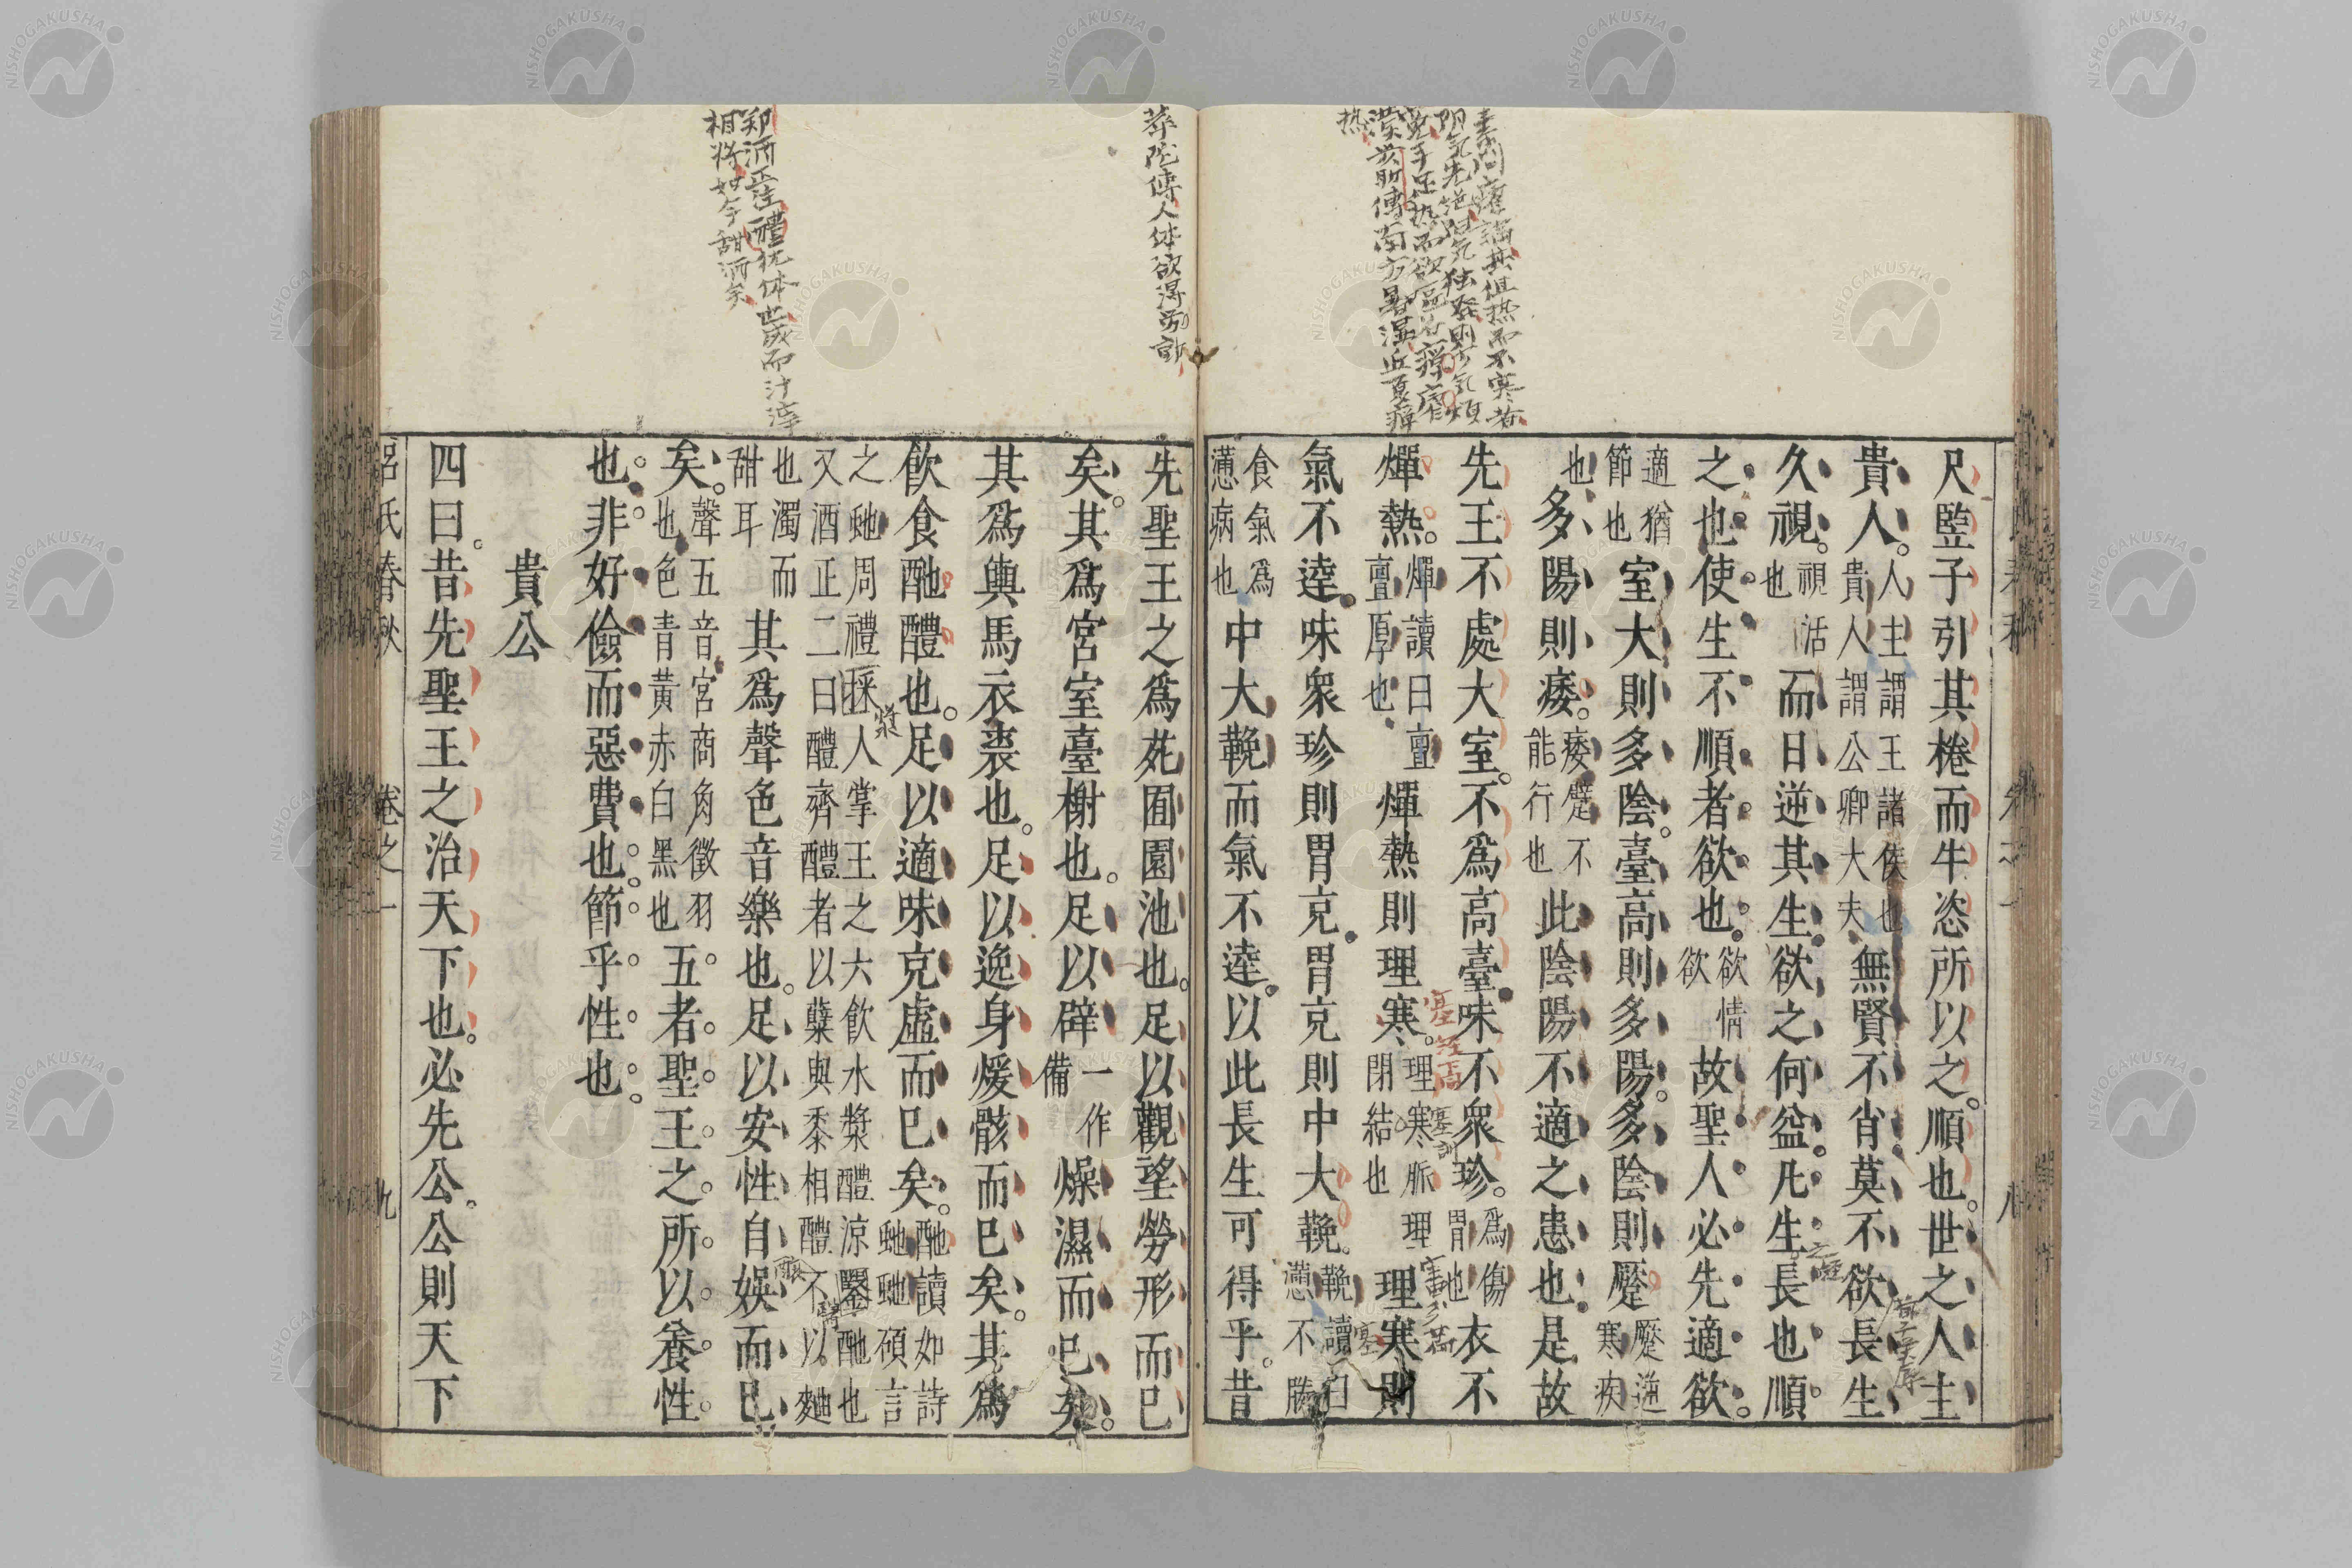 尺䀿子引其棬而牛恣所以之順也世之人主
貴人人主謂王諸侯也貴人謂公卿大夫無賢不肖莫不欲長生
久視視活也而日逆其生欲之何益凡生長也順
之也使生不順者欲也欲情欲故聖人必先適欲
適猶節也室大則多陰臺高則多陽多陰則蹷蹷逆寒疾
也多陽則痿痿躄不能行也此陰陽不適之患也是故
先王不處大室不爲高臺味不衆珍爲傷胃也衣不
燀熱燀讀曰亶亶厚也燀熱則理寒理寒脈理閉結也理寒則
氣不達味衆珍則胃充胃充則中大鞔鞔讀曰懣不勝
食氣爲懣病也中大鞔而氣不達以此長生可得乎昔
先聖王之爲苑囿園池也足以觀望勞形而已
矣其爲宮室臺榭也足以辟一作備燥濕而已矣
其爲輿馬衣裘也足以逸身煖骸而已矣其爲
飲食酏醴也足以適味充虛而已矣酏讀如詩虵虵碩言
之虵周禮人掌王之六飲水漿醴涼醫酏也又酒正二曰醴齊醴者以糵與黍相醴不以麯
也濁而甜耳其爲聲色音樂也足以安性自娛而已
矣聲五音宮商角徵羽也色青黃赤白黑也五者聖王之所以養性
也非好儉而惡費也節乎性也
貴公
四曰昔先聖王之治天下也必先公公則天下
呂氏春秋 卷之一 九
華陀傳人体欲得勞
鄭酒正注醴犹体也成而汁滓
相将如今甜酒矣